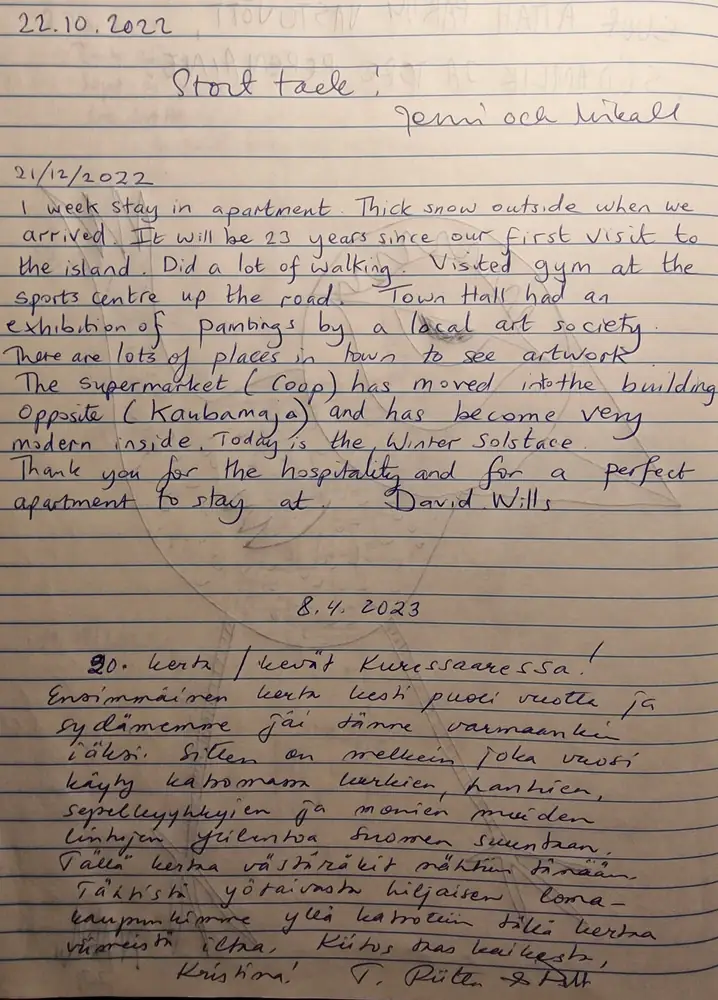 22.10.2022
Stort tack!
Jenni och Mikael
21/12/2022
1 week stay in apartment. Thick snow outside when we
arrived. It will be 23 years since our first visit to
the island. Did a lot of walking. Visited gym at the
sports centre up the road. Town Hall had an
exhibition of paintings by a local art society.
There are lots of places in town to see artwork
The supermarket (Coop) has moved into the building
opposite (Kaubamaja) and has become very
modern inside. Today is the Winter Solstace.
Thank you for the hospitality and for a perfect
apartment to stay at. David Wills
8.4.2023
20. kerta / kevät Kuressaaressa!
Ensimmäinen kerta kesti puoli vuotta ja
sydämemme jäi tänne varmaankin
iäksi. Sitten on melkein joka vuosi
käyty katsomassa kurkien, hanhien,
sepelkyyhkyjen ja monien muiden
lintujen ylilentoa Suomen suuntaan.
Tällä kertaa västäräkit nähtiin tänään.
Tähtistä yötaivasta hiljaisen loma-
kaupunkimme yllä katsotiin tällä kertaa
viimeistä iltaa. Kiitos taas kaikesta,
Kristina! T.